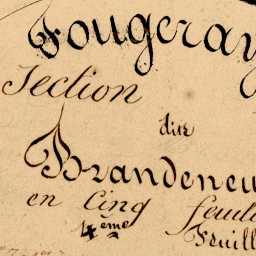 Fougeray
Section
dite
Brandeneu
en Cinq feuill
4eme
Feuill